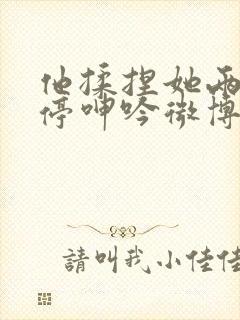 他揉捏她两
停呻吟微博
請叫我小佳佳